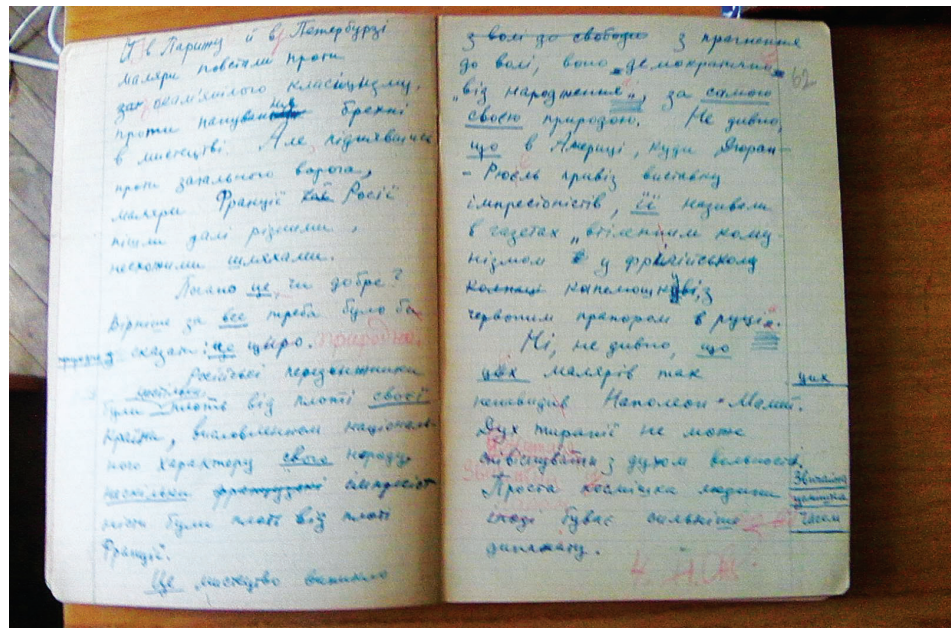 І в Парижу й в Петербурзі
маляри повстали проти
закам'янілого класіцизму,
проти брехні
в мистецтві. Але, піднявшись
проти загального ворога,
маляри Франції Росії
пішли далі різними,
несхожими шляхами.
Погано це, чи добре?
Вірніше за все треба було би
сказати: що щиро. природно.
Російські передвижники
були плоть від плоті своєї
країни, національ-
ного характеру свого народу,
французькі імпресіо-
ністи були плоть від плоті
Франції.
Це мистецтво виникло
з волі до свободи з прагнення
до волі, воно „демократичне
62
„від народження", за самою
своєю природою. Не дивно,
що в Америці, куди Дюран-
-Рюель привіз виставку
імпресіоністів, її називали
в газетах „втіленим кому-
нізмом у французькому
капелюшку і з
червоним прапором в руці".
Ні, не дивно, що
цих малярів так
цих
ненавидів Наполеон Малий.
Дух тиранії не може
з духом вольності.
Проста посмішка людини
Звичайна
усмішка
іноді буває сильніше
часом